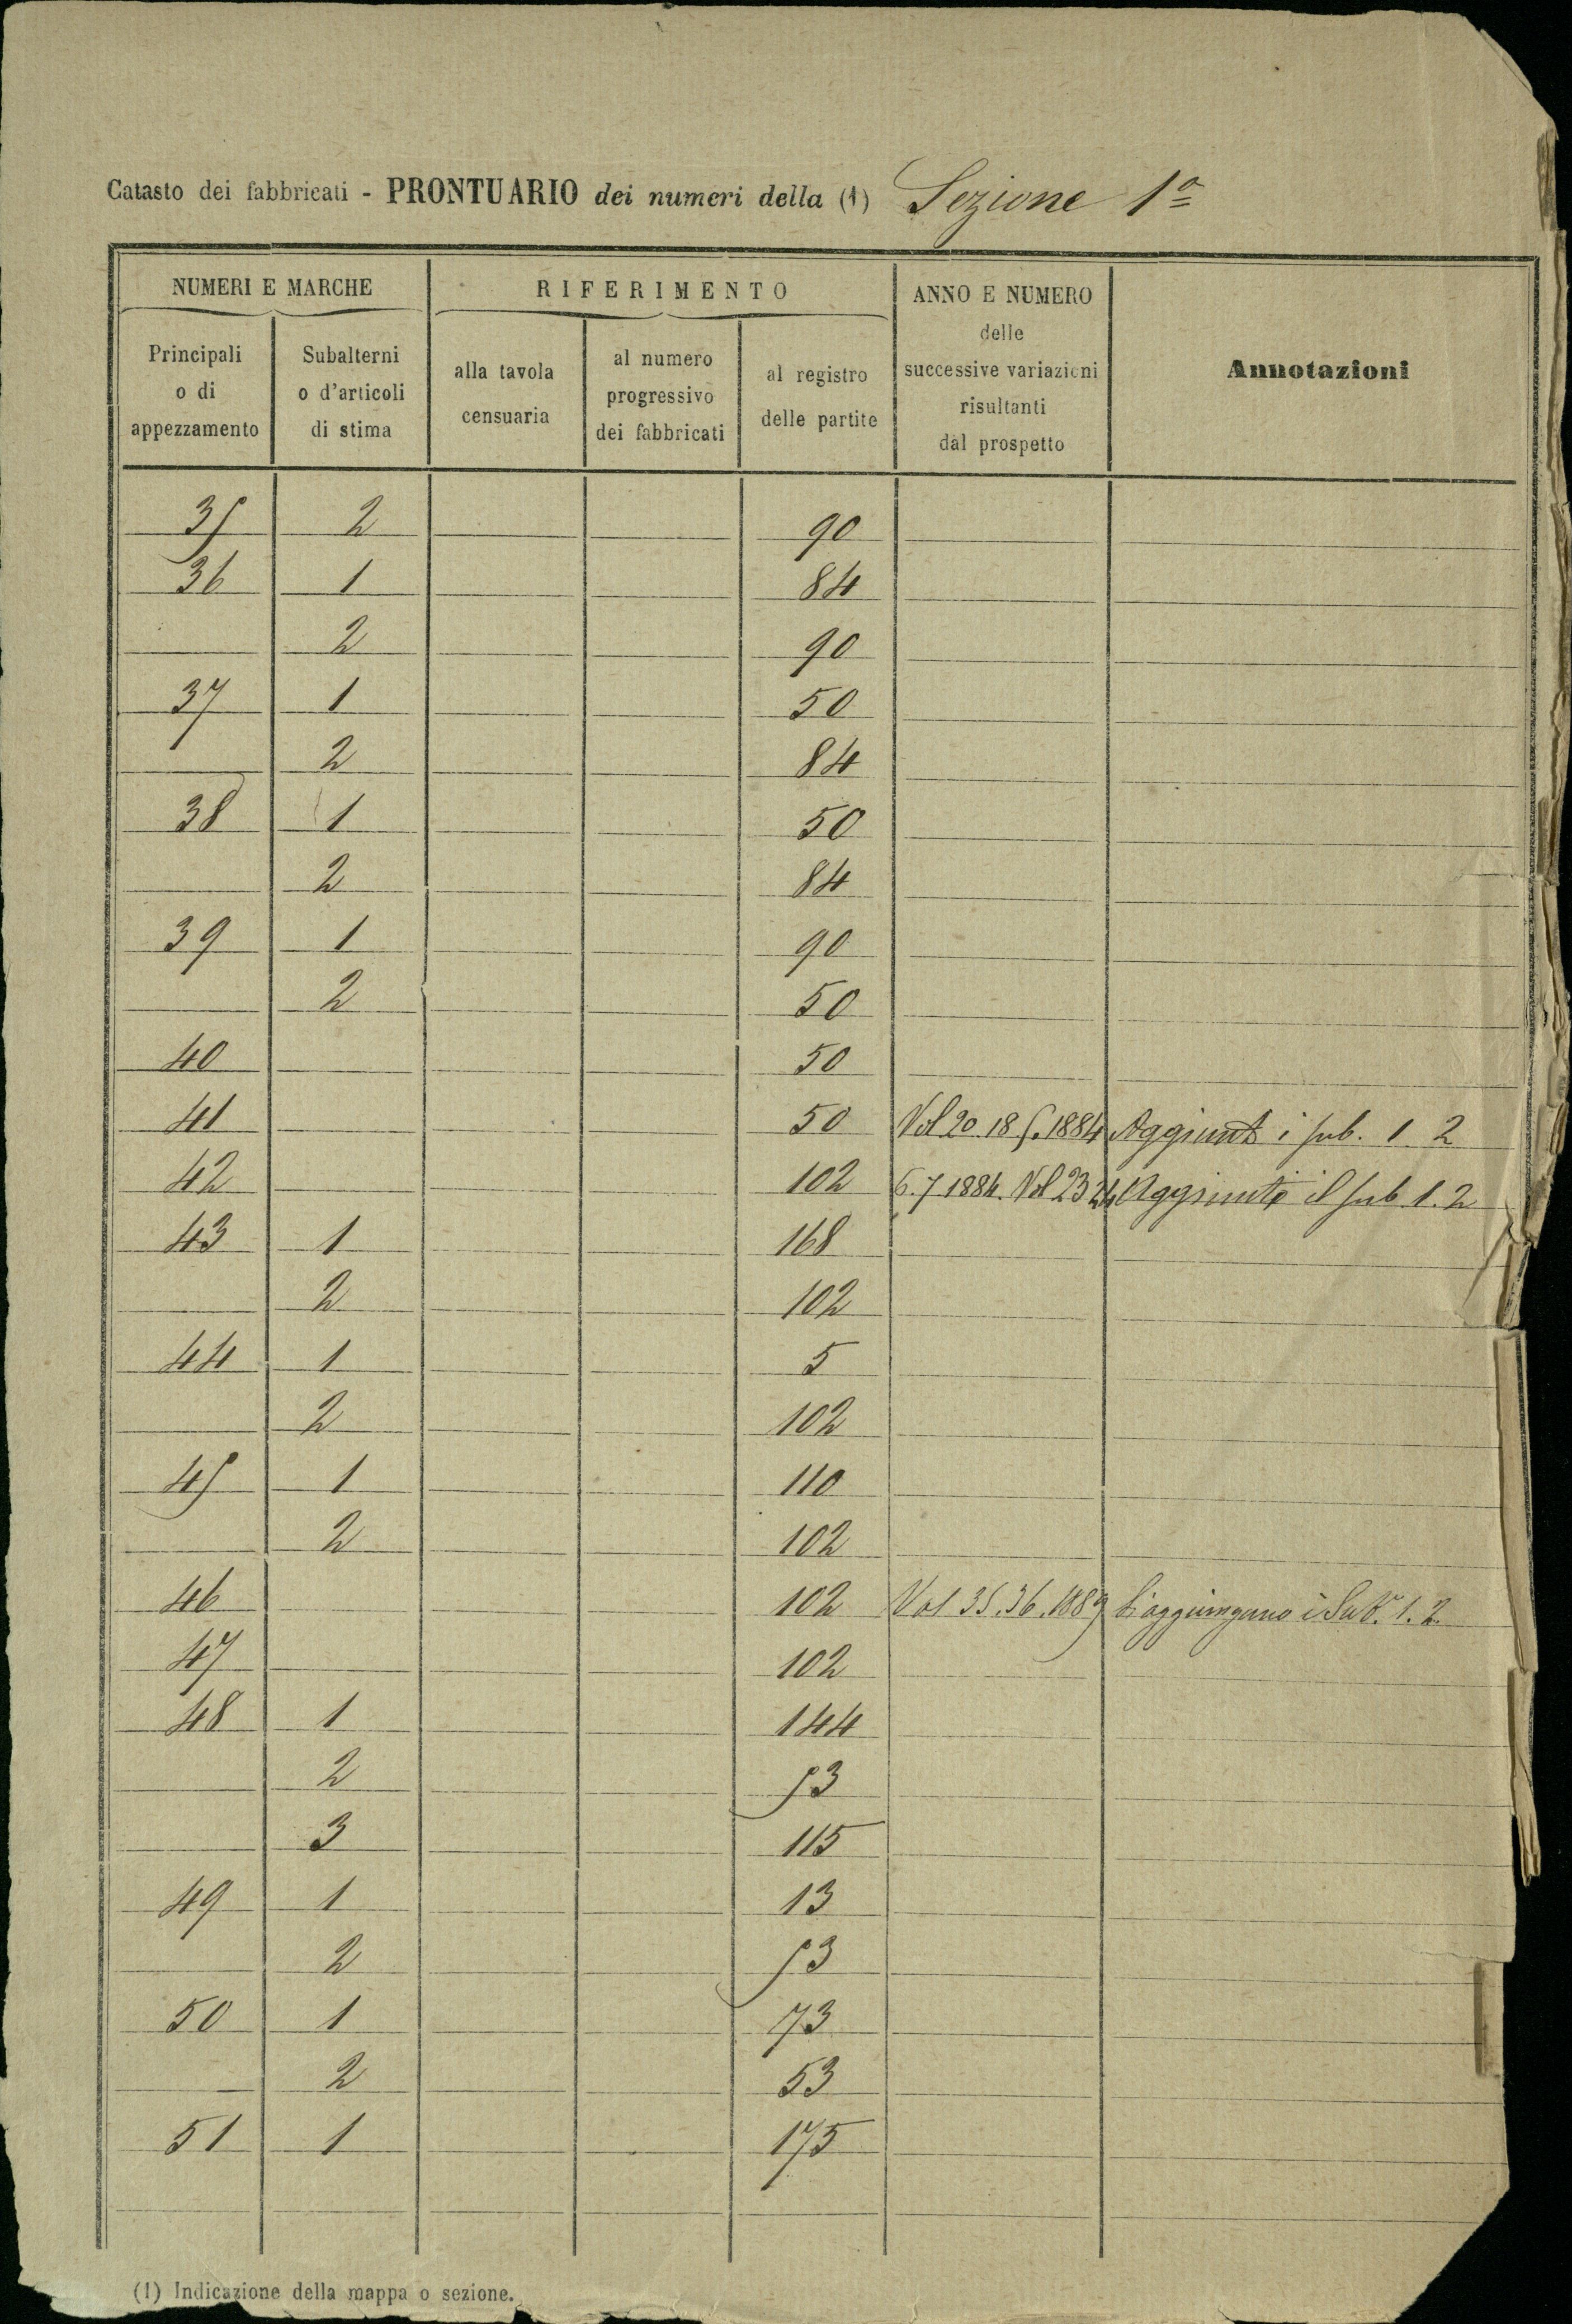 Catasto dei fabbricati - PRONTUARIO dei numeri della (1) Sezione 1ª
NUMERI E MARCHE
RIFERIMENTO
ANNO E NUMERO
delle
successive variazioni
risultanti
dal prospetto
Annotazioni
Principali
o di
appezzamento
Subalterni
o d'articoli
di stima
alla tavola
censuaria
al numero
progressivo
dei fabbricati
al registro
delle partite
35 2 90
36 1 84
2 90
37 1 50
2 84
38 1 50
2 84
39 1 90
2 50
40 50
41 50 Vol 20. 18 1884 Aggiunti i sub. 1 2
42 102 6.7 1884. Vol 23 24 Aggiunto il sub 1. 2
43 1 168
2 102
44 1 5
2 102
45 1 110
2 102
46 102 Vol 35.36.1889 Si aggiungano i Sub. 1. 2.
47 102
48 1 144
2 53
3 115
49 1 13
2 53
50 1 73
2 53
51 1 175
(1) Indicazione della mappa o sezione.